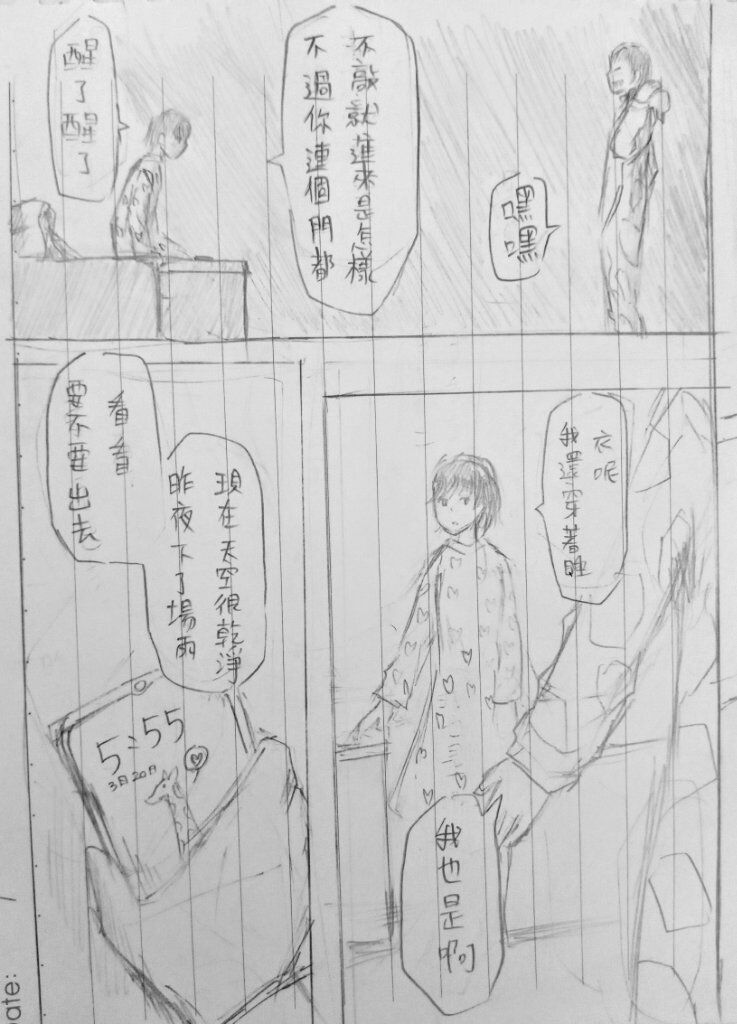 醒了醒了
不過你連個門都
不敲就進來是怎樣
嘿嘿
要不要出去
看看
昨夜下了場雨
現在天空很乾淨
5:55
3月20日
我還穿著睡
衣呢
我也是啊
ate: